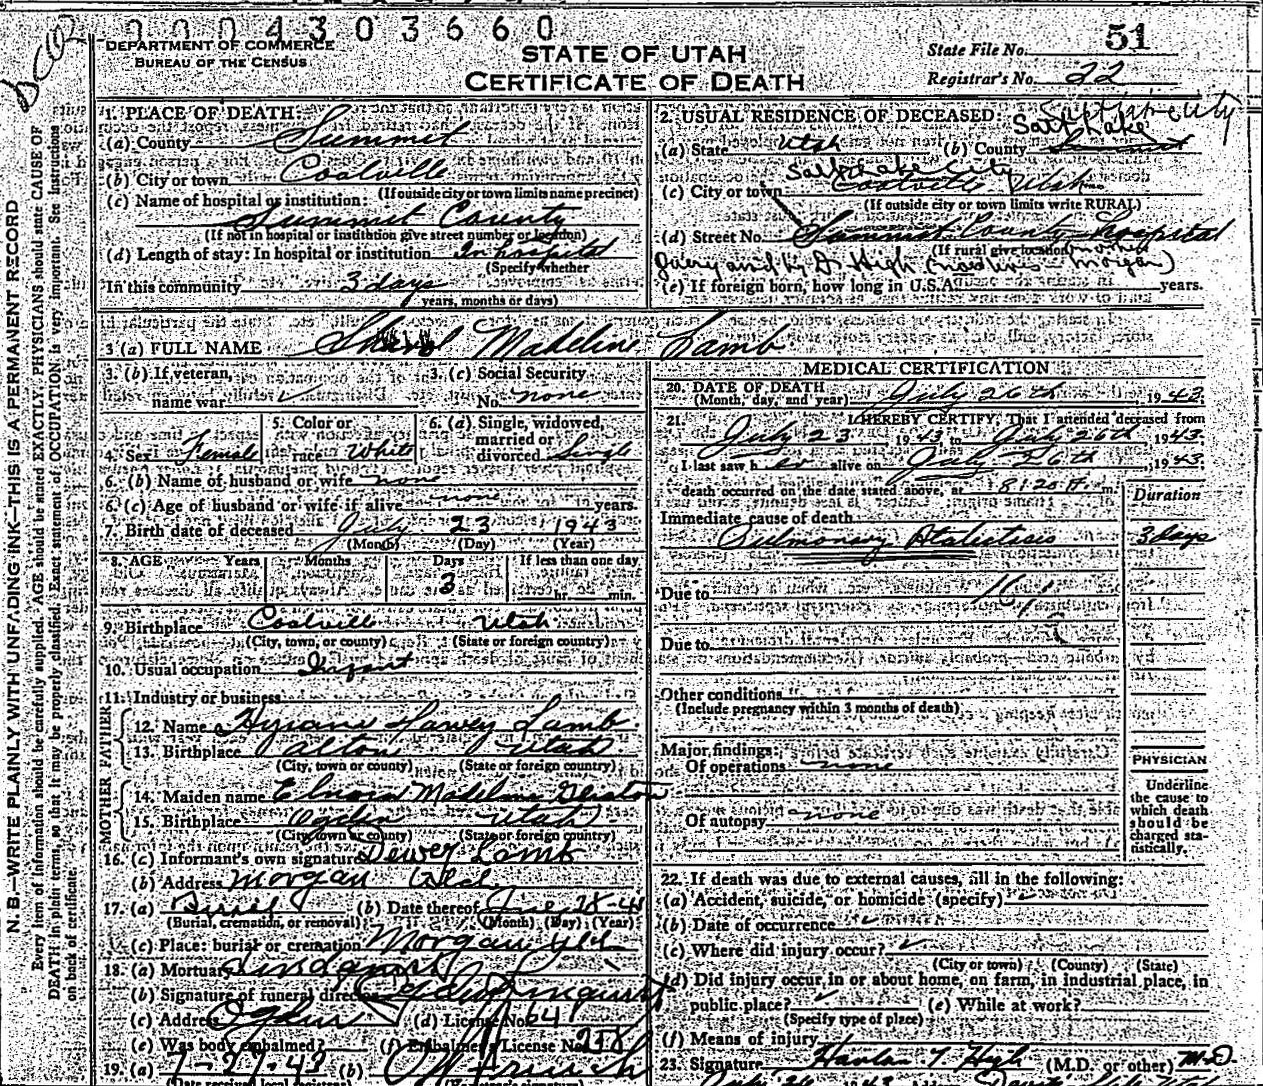 0 0 0 4 3 0 3 6 6 0
DEPARTMENT OF COMMERCE
BUREAU OF THE CENSUS
STATE OF UTAH
CERTIFICATE OF DEATH
State File No. 51
Registrar's No. 22
N. B.—WRITE PLAINLY WITH UNFADING INK—THIS IS A PERMANENT RECORD
Every item of information should be carefully supplied. AGE should be stated EXACTLY. PHYSICIANS should state CAUSE OF
DEATH in plain terms, so that it may be properly classified. Exact statement of OCCUPATION is very important. See instructions
on back of certificate.
1. PLACE OF DEATH:
(a) County Summit
(b) City or town Coalville
(If outside city or town limits name precinct)
(c) Name of hospital or institution:
Summit County
(If not in hospital or institution give street number or location)
(d) Length of stay: In hospital or institution In hospital
(Specify whether
In this community 3 days
years, months or days)
2. USUAL RESIDENCE OF DECEASED:
Salt Lake
(a) State Utah (b) County Summit
Salt Lake City
(c) City or town Coalville Utah
(If outside city or town limits write RURAL)
(d) Street No. Summit County Hospital
(If rural give location)
Query ansd by Dr. High (mother lives Morgan)
(e) If foreign born, how long in U.S.A. years.
3 (a) FULL NAME Sheryl Madeline Lamb
3. (b) If veteran,
name war
3. (c) Social Security
No. none
4. Sex Female
5. Color or
race White
6. (a) Single, widowed,
married or
divorced Single
6. (b) Name of husband or wife none
6. (c) Age of husband or wife if alive none years.
7. Birth date of deceased July 23 1943
(Month) (Day) (Year)
8. AGE Years Months Days If less than one day
3 hr. min.
9. Birthplace Coalville Utah
(City, town, or county) (State or foreign country)
10. Usual occupation Infant
11. Industry or business
FATHER
12. Name Harvey Lamb
13. Birthplace Alton Utah
(City, town or county) (State or foreign country)
MOTHER
14. Maiden name Madeline
15. Birthplace Ogden Utah
(City, town or county) (State or foreign country)
16. (c) Informant's own signature Dewey Lamb
(b) Address Morgan Utah
17. (a) Burial (b) Date thereof 28-43
(Burial, cremation, or removal) (Month) (Day) (Year)
(c) Place: burial or cremation Morgan Utah
18. (a) Mortuary Lindquist
(b) Signature of funeral director Lindquist
(c) Address Ogden (d) License No. 641
(e) Was body embalmed? (f) Embalmer's License No. 258
19. (a) 7-27-43 (b)
(Date received local registrar)
MEDICAL CERTIFICATION
20. DATE OF DEATH
(Month, day, and year) July 26th, 1943
21. I HEREBY CERTIFY, That I attended deceased from
July 23 1943 to July 26th 1943
I last saw her alive on July 26th, 1943
death occurred on the date stated above, at 8:20 A. m.
Duration
Immediate cause of death
Pulmonary Atalectasis 3 days
Due to 161
Due to
Other conditions
(Include pregnancy within 3 months of death)
Major findings:
Of operations none
Of autopsy none
PHYSICIAN
Underline
the cause to
which death
should be
charged sta-
tistically.
22. If death was due to external causes, fill in the following:
(a) Accident, suicide, or homicide (specify)
(b) Date of occurrence
(c) Where did injury occur?
(City or town) (County) (State)
(d) Did injury occur in or about home, on farm, in industrial place, in
public place? (e) While at work?
(Specify type of place)
(f) Means of injury
23. Signature Harlan T High (M.D. or other) M.D.